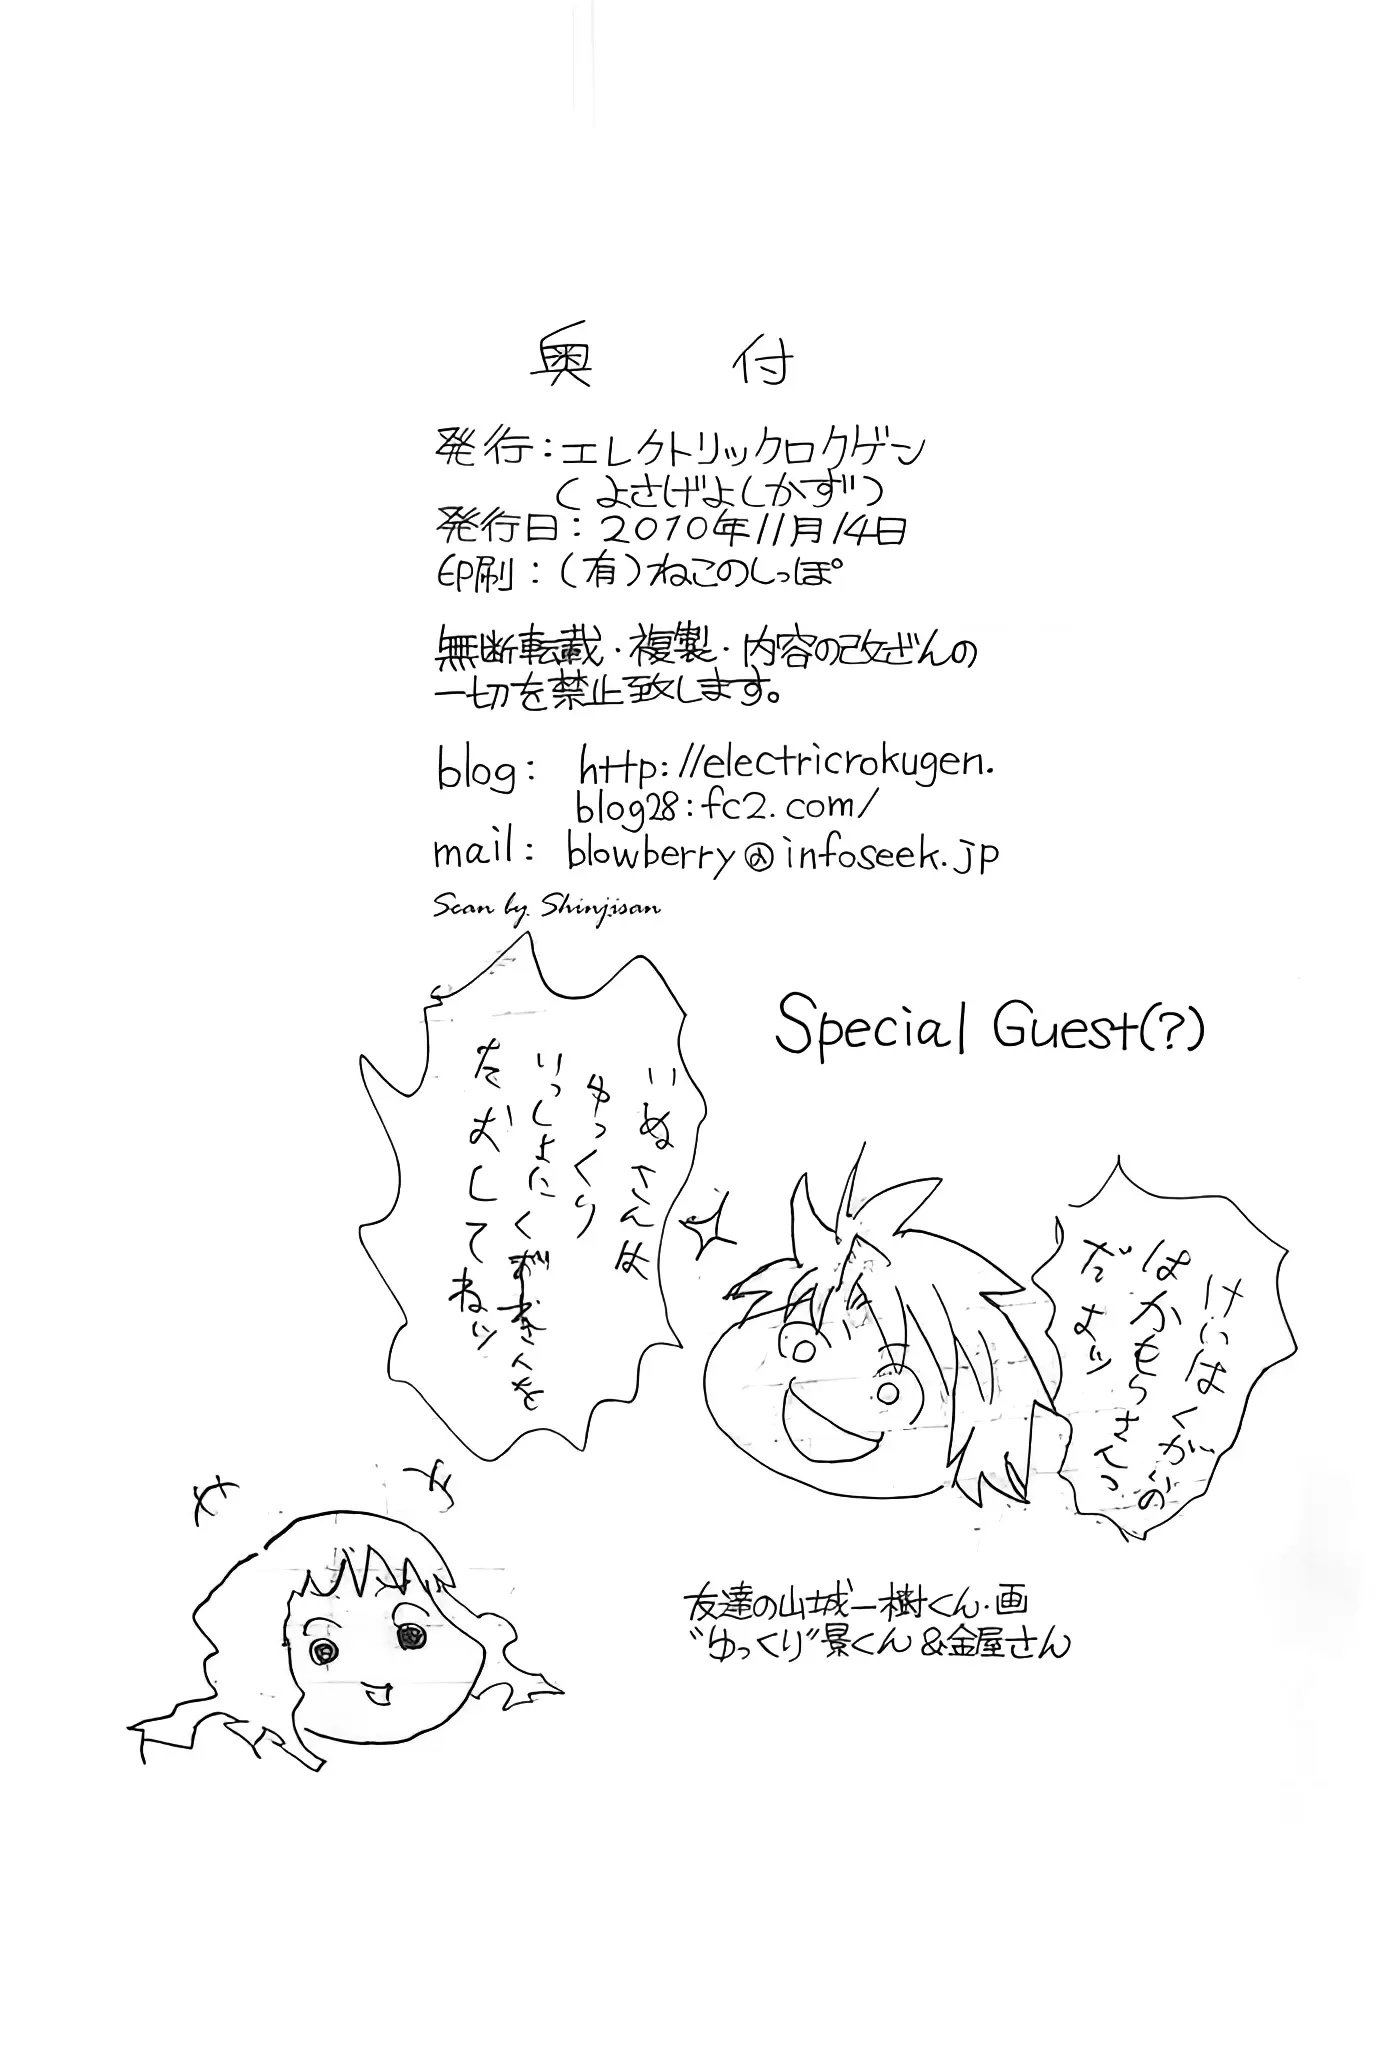 奥付
発行：エレクトリックロクゲン
(よさげよしかず)
発行日：2010年11月14日
印刷：(有)ねこのしっぽ
無断転載・複製・内容の改ざんの
一切を禁止致します。
blog: http://electricrokugen.
blog28.fc2.com/
mail: blowberry@infoseek.jp
Scan by Shinjisan
Special Guest(?)
けいはくがいの
はかもらさんっ
だよッ
いぬさんは
ゆっくり
いっしょにくがきんを
たおしてねッ
友達の山城一樹くん・画
"ゆっくり"景くん&金屋さん